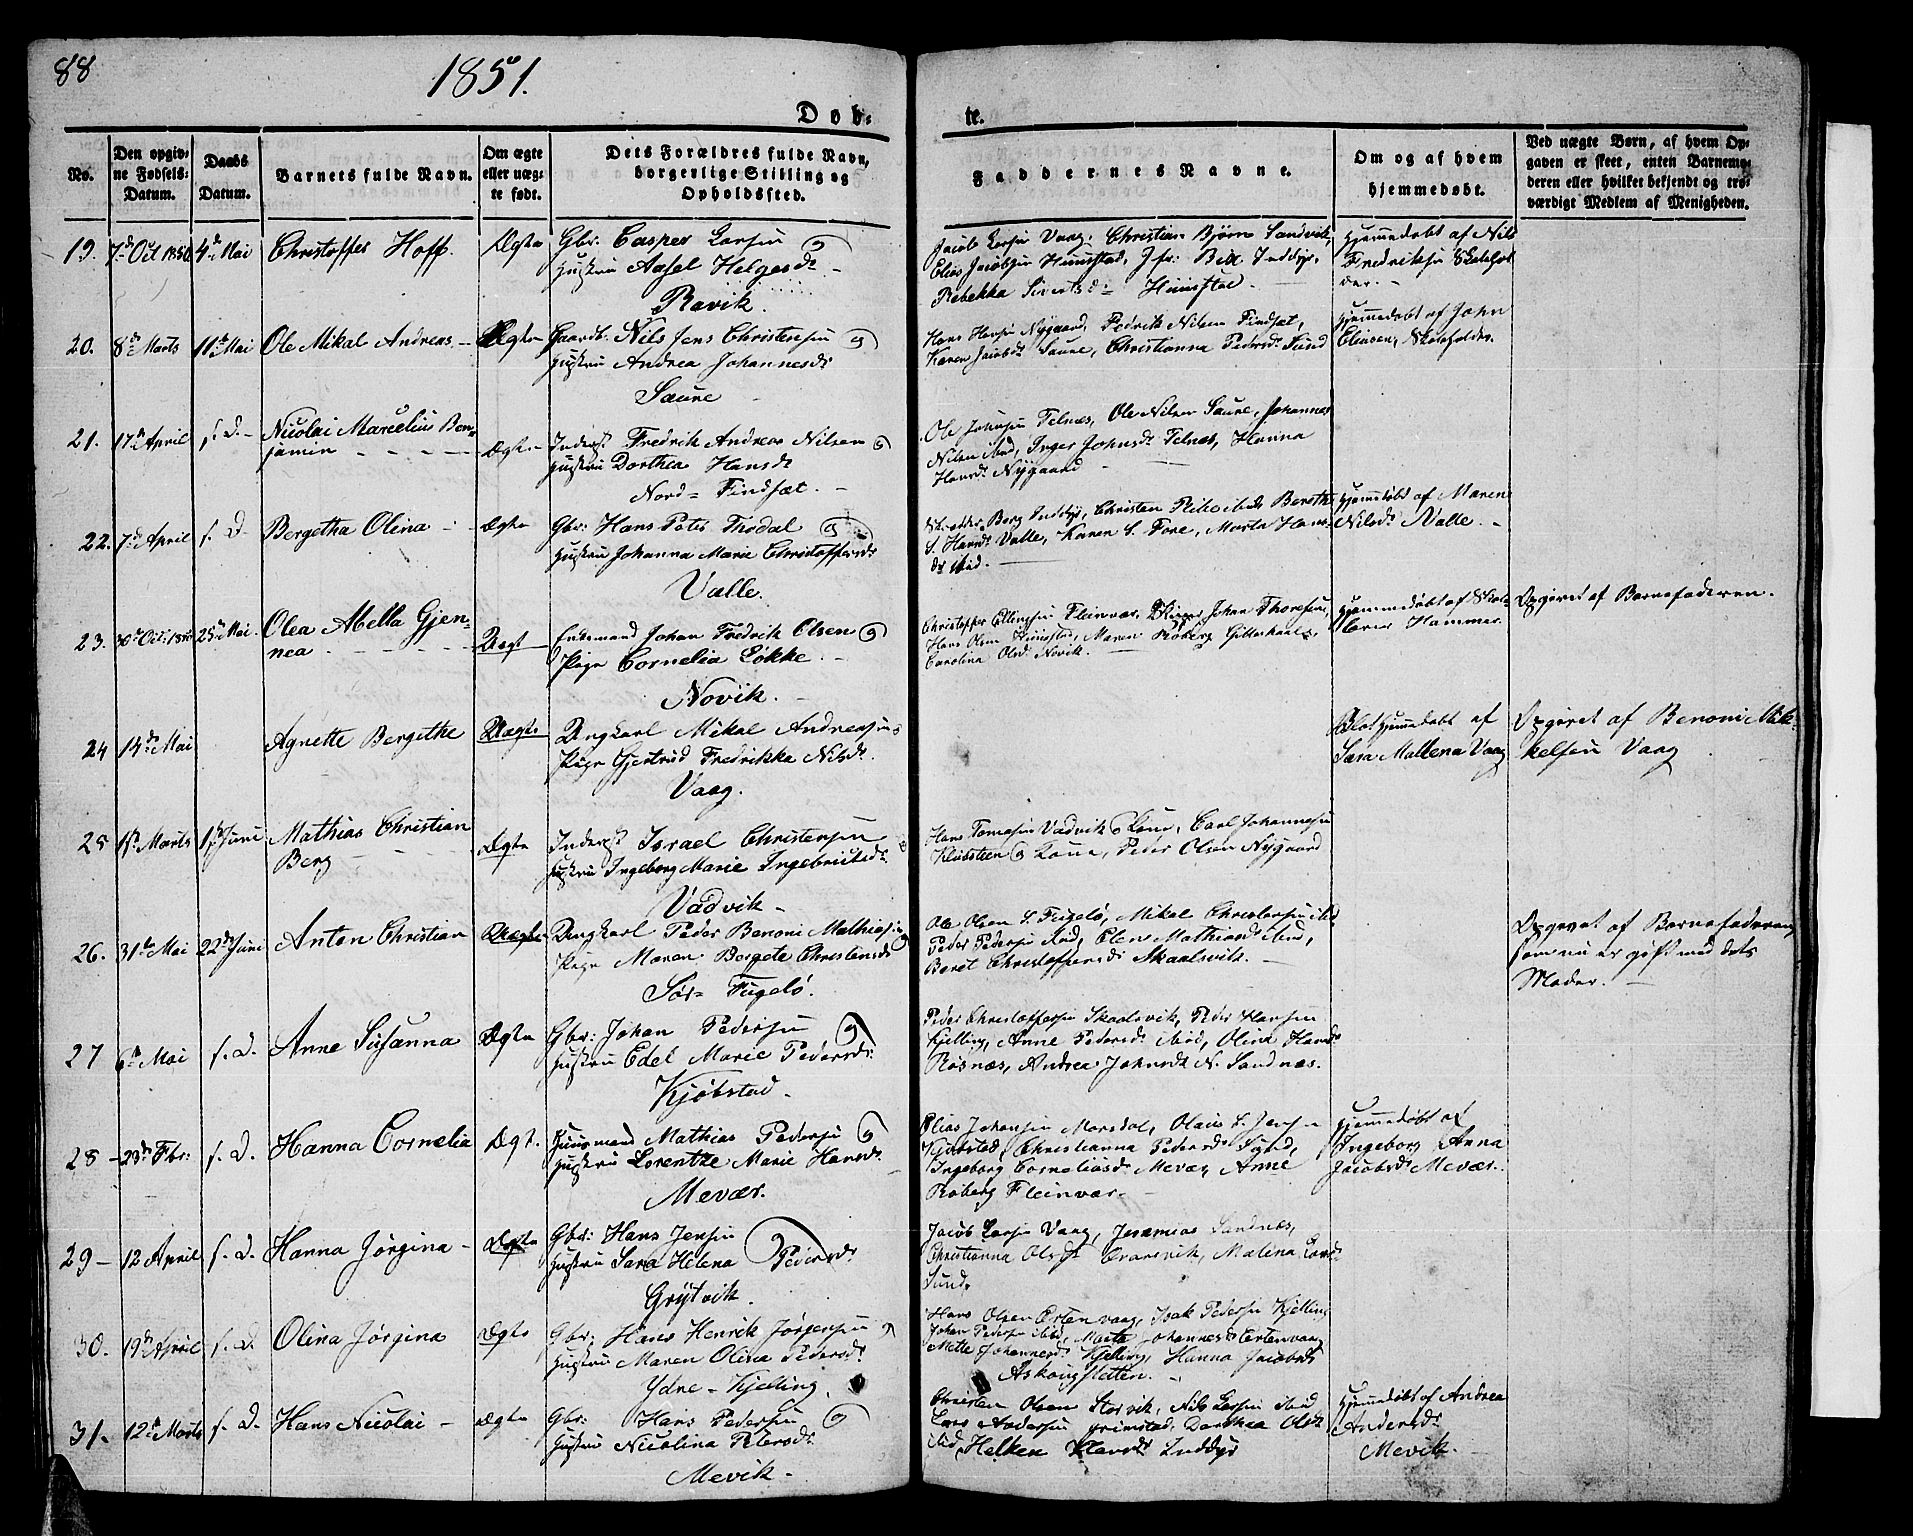 88
1851.
Døb-
te.
No.
Den opgiv-
ne Fødsels-
Datum.
Daabs
Datum.
Barnets fulde Navn.
Om ægte
eller uæg-
te født.
Dets Forældres fulde Navn,
borgerlige Stilling og
Opholdssted.
Faddernes Navne.
Om og af hvem
hjemmedøbt.
Ved uægte Børn, af hvem Op-
gaven er skeet, enten Barnemo-
deren eller hvilket bekjendt og tro-
værdigt Medlem af Menigheden.
19. 7de Oct 1850 4de Mai Christoffer Hoff. Ægte Gbr: Casper Larsen
Hustru Aasel Helgesdr
Ravik.
Jacob Larsen Vaag, Christian Bjørn Sandvik,
Elias Jacobsen Hunstad, Jfr: Bell Inddyr,
Rebekka Sivertsd: Hunstad.
Hjemmedøbt af Nils
Fredriksen
20. 8de Marts 11te Mai Ole Mikal Andreas. Ægte Gaardb. Nils Jens Christensen
Hustru Andrea Johannesdr
Saure
Hans Hansen Nygaard, Pedrik Nilsen Findsæt,
Karen Jacobsdr Saure, Christianna Pedersdr Sund
Hjemmedøbt af John
Eliasen, Skoleholder.
21. 17de April s. D. Nicolai Marcelius Ben-
jamin Ægte Inderst Fredrik Andreas Nilsen
Hustru Dorthea Hansdr
Nord-Findsæt.
Ole Johnsen Felnæs, Ole Nilsen Saure, Johannes
Nilsen ibid, Inger Johnsdr Felnæs, Hanna
Hansdr Nygaard
22. 7de April s. D. Bergetha Olina Ægte Gbr: Hans Peter Tirdal
Hustru Johanna Marie Christoffersdr
Valle.
Berg Inddyr, Christen ibid, Bereth
S. Hansdr Valle, Karen S. Fore, Marta Hans-
dr ibid.
Hjemmedøbt af Maren
Nilsdr Valle.
23. 30te Oct: 1850 25de Mai. Olea Abella Gjen-
nea Uægt Enkemand Johan Fredrik Olsen
Pige Cornelia Løkke
Novik.
Christopher Ellingsen Fleinvær, Skipper Johan Thoresen,
Hans Olsen Hunstad, Maren Roberg
Carolina Olsdr Novik.
Hjemmedøbt af Skole-
lærer Hammer.
Opgivet af Barnefaderen.
24 14de Mai Agnette Bergithe Uægte Ungkarl Mikal Andreasen
Pige Gjertrud Fredrikka Nilsdr.
Vaag.
Blot hjemmedøbt af
Sara Mallena Vaag
Opgivet af Benoni Mik-
kelsen Vaag
25 1ste Marts 1ste Juni Mathias Christian
Berg Ægte Inderst Israel Christensen
Hustru Ingeborg Marie Ingebrictsdr
Vadvik
Hans Tomesen Vadvik & Kone, Carl Johannesen
Klubsteen & Kone, Peder Olsen Nygaard
26. 31te Mai 22de Juni Anton Christian Uægte Ungkarl Peder Benoni Mathiesen
Pige Maren Bergete Christensdr
Sør-Fugelø.
Ole Olsen S. Fugelø, Mikal Christensen ibid
Peder Pedersen ibid, Elen Mathiasdr ibid,
Beret Christoffersdr Skaalsvik.
Opgivet af Barnefaderen,
som nu er gift med dets
Moder.
27 6te Mai s. D. Anne Susanna Ægte Gbr: Johan Pedersen
Hustru Edel Marie Pedersdr.
Kjøbstad
Peder Christoffersen Skaalsvik, Peder Hansen
Kjelling, Anne Pedersdr ibid, Olina Hansdr
Røsnæs, Andrea Johnsdr N. Sandnæs.
28 23de Fbr: s. D. Hanna Cornelia Ægt. Huusmand Mathias Pedersen
Hustru Lorentze Marie Hansdr.
Mevær.
Elias Johansen Morsdal, Olaus L. Jensen
Kjøbstad, Christianna Pedersdr Sund,
Ingeborg Corneliusdr Mevær, Anne
Roberg Fleinvær.
Hjemmedøbt af
Ingeborg Anna
Jacobsdr Mevær.
29 12 April s. D. Hanna Jørgina Ægte Gbr: Hans Jensen
Hustru Sara Helena Pedersdr
Grytvik.
Jacob Larsen Vaag, Jeremias Sandnæs,
Christianna Olsdr Malena
Sund.
30. 19de April s. D. Olina Jørgina Ægte Gbr: Hans Henrik Jørgensen
Hustru Maren Olina Pedersdr.
Ydre-Kjelling.
Hans Olsen Ertenvaag, Isak Pedersen Kjelling
Johan Pedersen ibid, Marta Johannesdr Ertenvaag
Mette Johannesdr Kjelling, Hanna Jacobsdr
31. 12te Marts s. D. Hans Nicolai Ægte Gbr: Hans Pedersen
Hustru Nicolina Petersdr
Mevik
Christen Olsen Storvik, Nils Larsen ibid
Lars Andersen Grimstad, Dorthea Olsdr
ibid Helken Hansdr Inddyr
Hjemmedøbt af Andrea
Andersdr
Mevik.